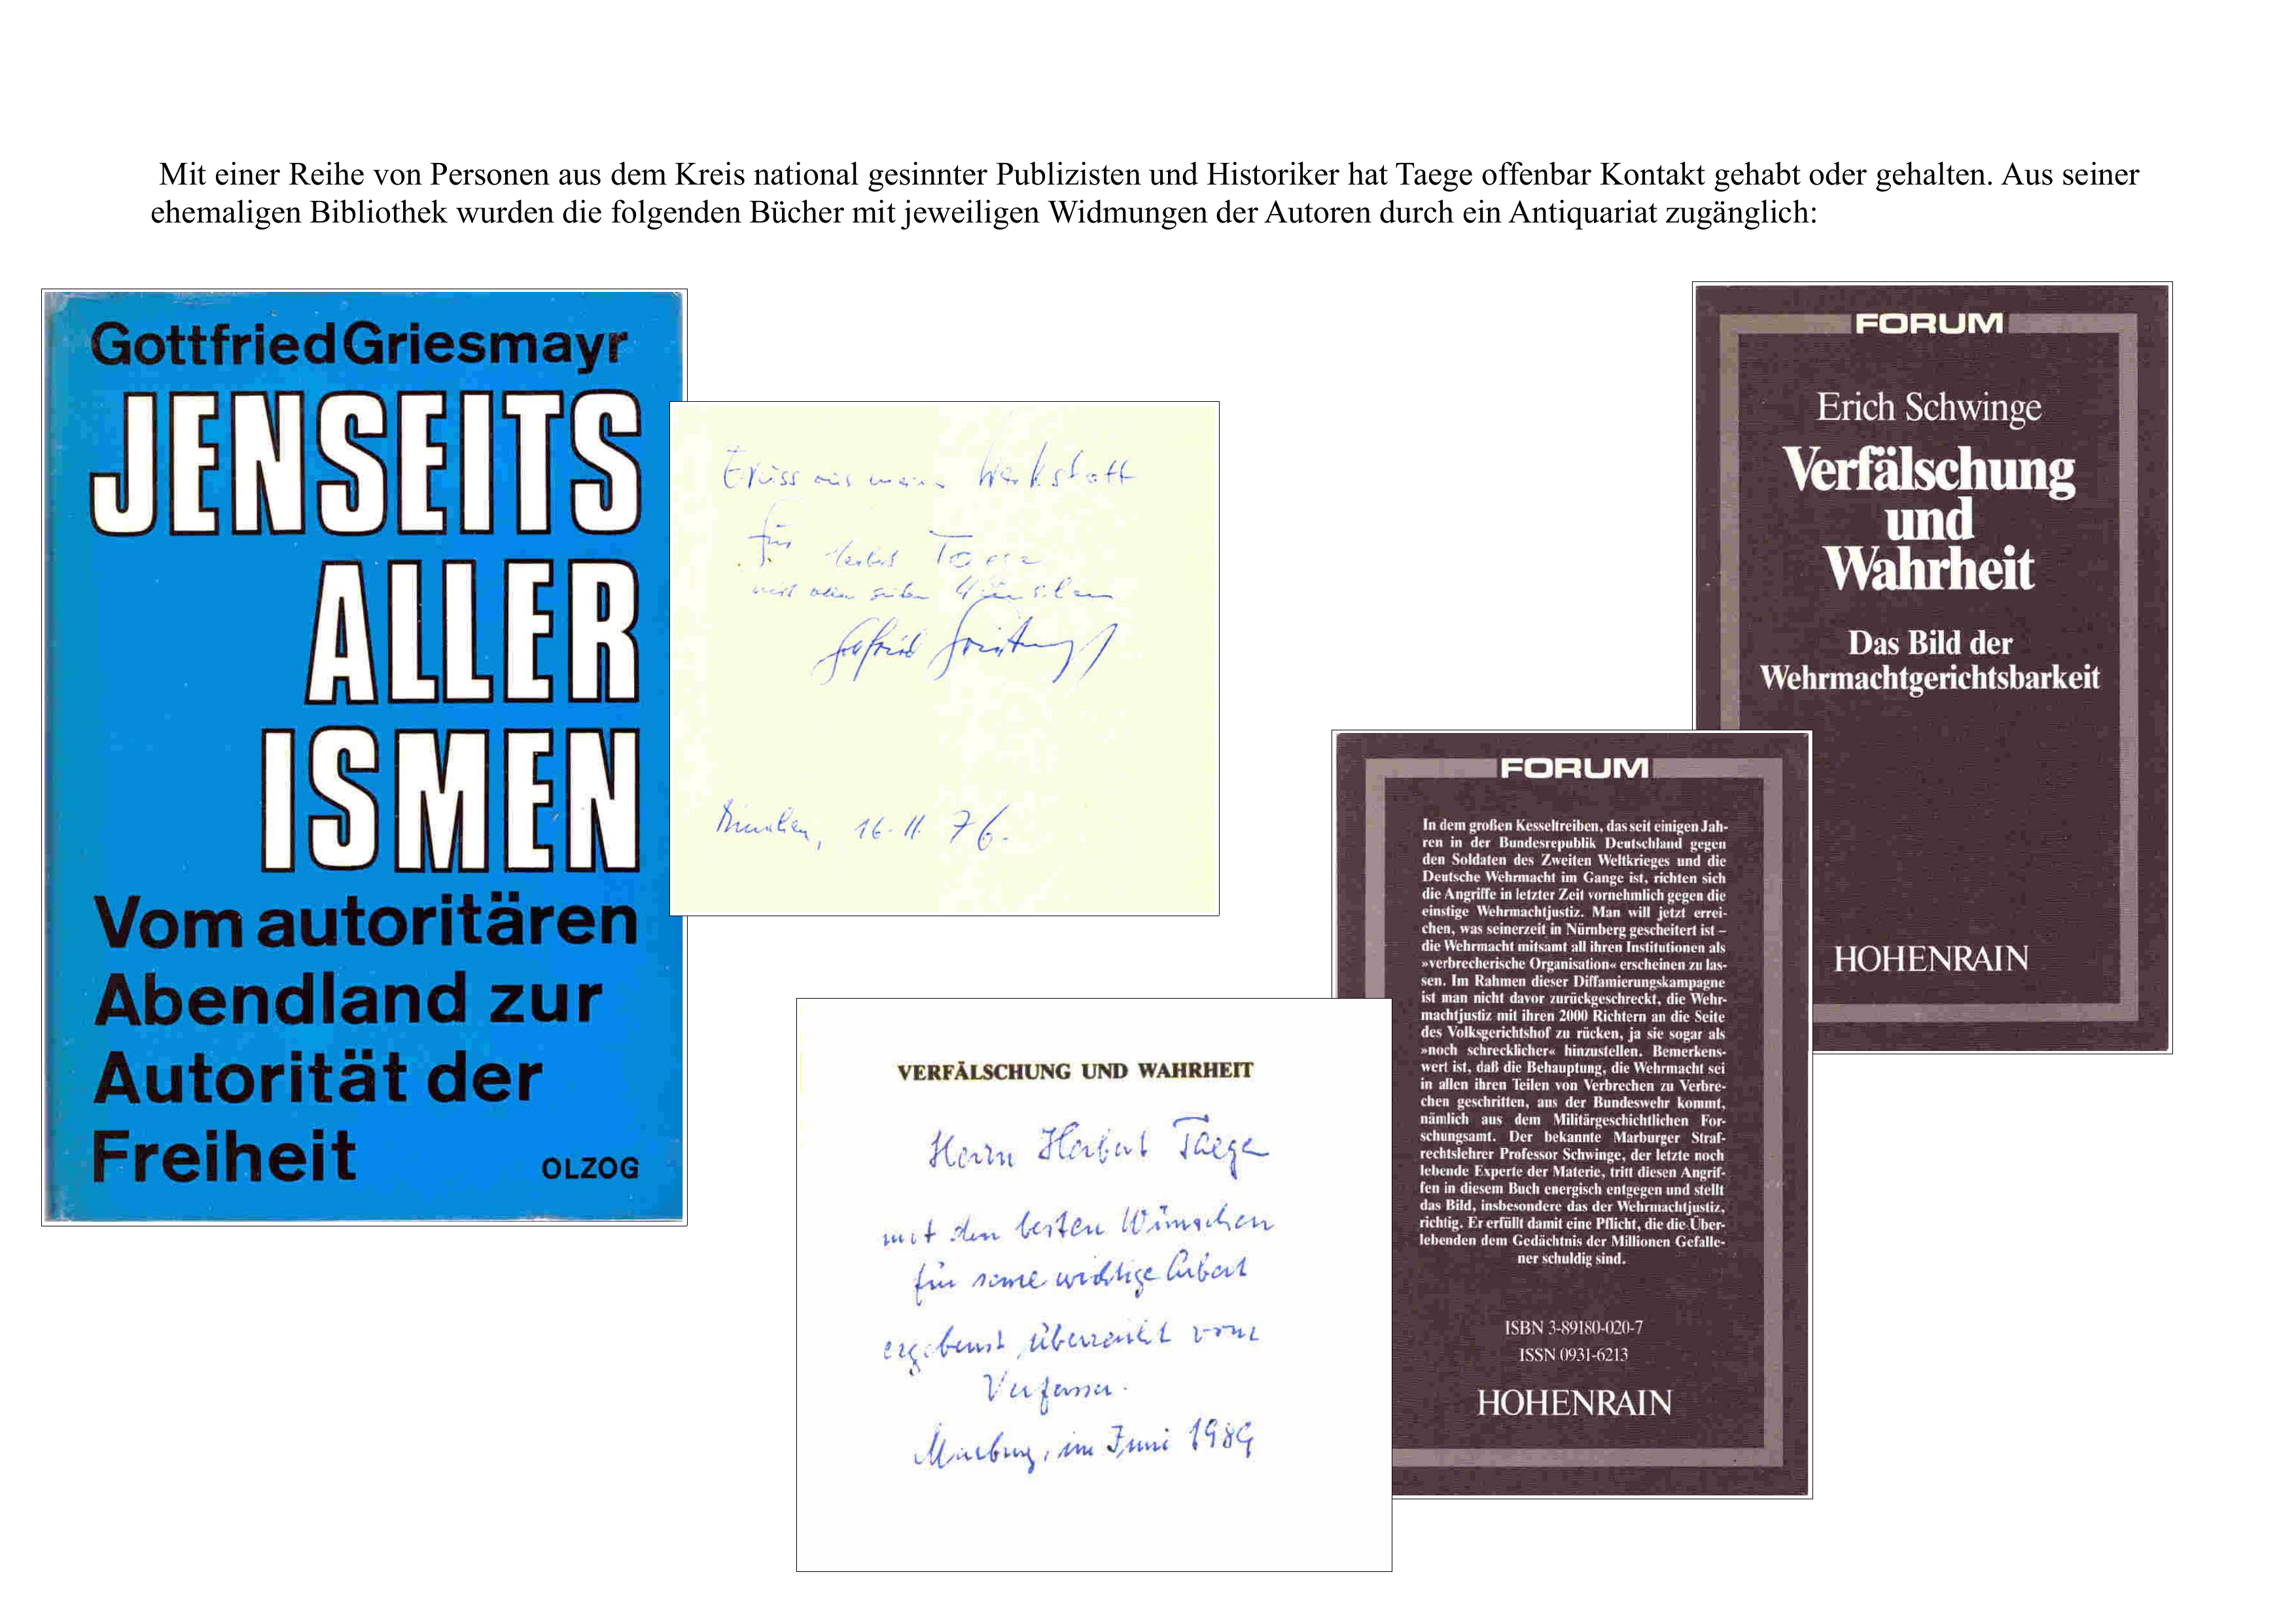 Mit einer Reihe von Personen aus dem Kreis national gesinnter Publizisten und Historiker hat Taege offenbar Kontakt gehabt oder gehalten. Aus seiner
ehemaligen Bibliothek wurden die folgenden Bücher mit jeweiligen Widmungen der Autoren durch ein Antiquariat zugänglich:
Gottfried Griesmayr
JENSEITS
ALLER
ISMEN
Vom autoritären
Abendland zur
Autorität der
Freiheit
OLZOG
Gruss aus meiner Werkstatt
für Herbert Taege
mit allen guten Wünschen
München, 16.11.76.
FORUM
Erich Schwinge
Verfälschung
und
Wahrheit
Das Bild der
Wehrmachtgerichtsbarkeit
HOHENRAIN
FORUM
In dem großen Kesseltreiben, das seit einigen Jah-
ren in der Bundesrepublik Deutschland gegen
den Soldaten des Zweiten Weltkrieges und die
Deutsche Wehrmacht im Gange ist, richten sich
die Angriffe in letzter Zeit vornehmlich gegen die
einstige Wehrmachtjustiz. Man will jetzt errei-
chen, was seinerzeit in Nürnberg gescheitert ist –
die Wehrmacht mitsamt all ihren Institutionen als
»verbrecherische Organisation« erscheinen zu las-
sen. Im Rahmen dieser Diffamierungskampagne
ist man nicht davor zurückgeschreckt, die Wehr-
machtjustiz mit ihren 2000 Richtern an die Seite
des Volksgerichtshof zu rücken, ja sie sogar als
»noch schrecklicher« hinzustellen. Bemerkens-
wert ist, daß die Behauptung, die Wehrmacht sei
in allen ihren Teilen von Verbrechen zu Verbre-
chen geschritten, aus der Bundeswehr kommt,
nämlich aus dem Militärgeschichtlichen For-
schungsamt. Der bekannte Marburger Straf-
rechtslehrer Professor Schwinge, der letzte noch
lebende Experte der Materie, tritt diesen Angrif-
fen in diesem Buch energisch entgegen und stellt
das Bild, insbesondere das der Wehrmachtjustiz,
richtig. Er erfüllt damit eine Pflicht, die die Über-
lebenden dem Gedächtnis der Millionen Gefalle-
ner schuldig sind.
ISBN 3-89180-020-7
ISSN 0931-6213
HOHENRAIN
VERFÄLSCHUNG UND WAHRHEIT
Herrn Herbert Taege
mit den besten Wünschen
für seine wichtige Arbeit
ergebenst überreicht vom
Verfasser.
Marburg, im Juni 1989